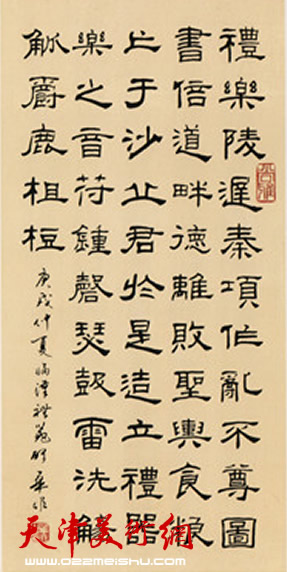 禮樂陵遲秦項作亂不尊圖
書倍道畔德離敗聖輿食粮
亡于沙丘君於是造立禮器
樂之音苻鍾磬瑟鼓雷洗觴
觚爵鹿柤梪
庚戌仲夏臨漢禮器碑華非
天津美術網
www.022meishu.com